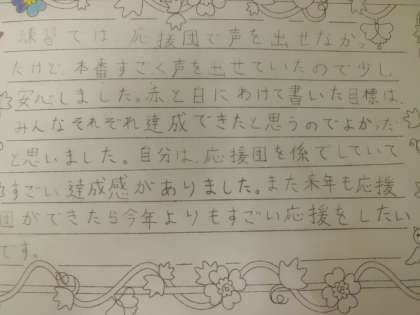 練習では、応援団で声を出せなかっ
たけど、本番すごく声を出せていたので少し
安心しました。赤と白にわけて書いた目標は、
みんなそれぞれ達成できたと思うのでよかった
と思いました。自分は、応援団を係でしていて
すごい達成感がありました。また来年も応援
団ができたら今年よりもすごい応援をしたい
です。